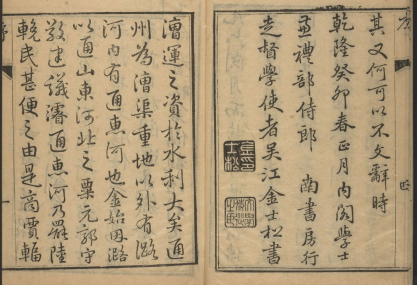 其又何可以不文辭時
乾隆癸卯春正月內閣學士
兼禮部侍郎 南書房行
走督學使者吳江金士松書
四
漕運之資於水利大矣通
州為漕渠重地以外有潞
河內有通惠河也金始因潞
以通山東河北之粟元郭守
敬建議濬通惠河乃罷陸
輓民甚便之由是商賈輻